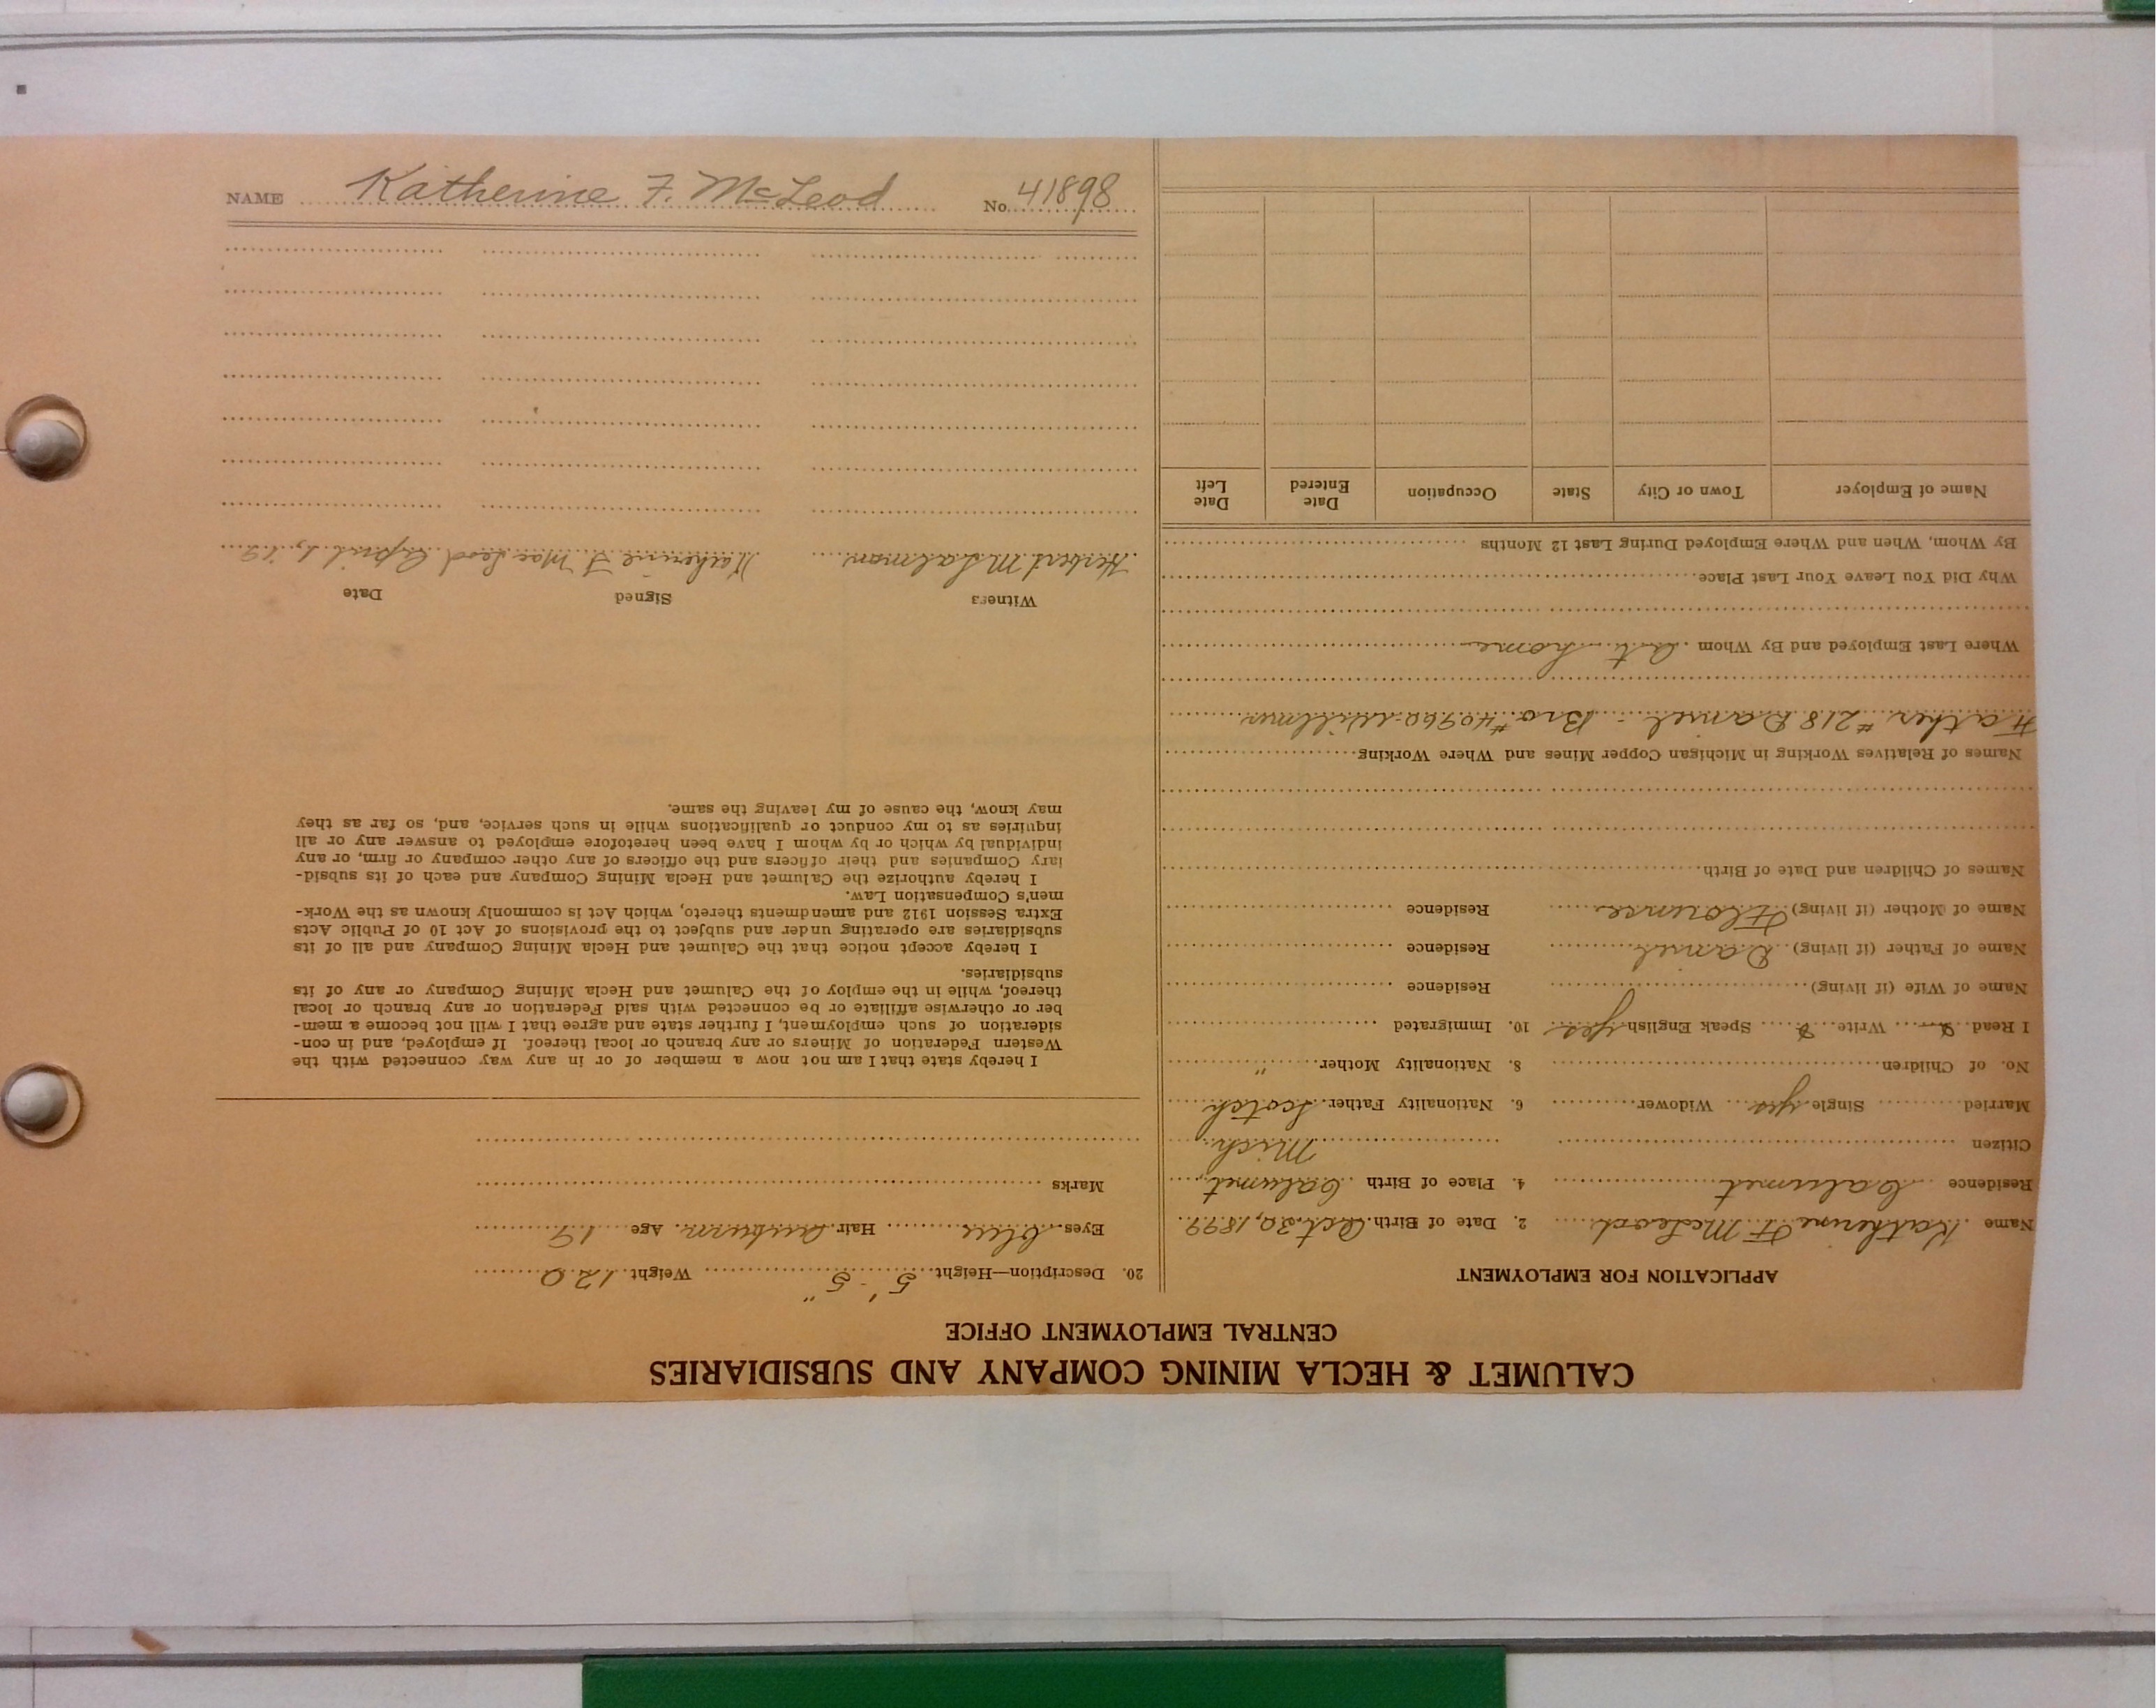 CALUMET & HECLA MINING COMPANY AND SUBSIDIARIES
CENTRAL EMPLOYMENT OFFICE
APPLICATION FOR EMPLOYMENT
Name Katherine F McLeod 2. Date of Birth Oct. 30, 1899
Residence Calumet 4. Place of Birth Calumet,
Citizen Mich.
Married Single yes Widower 6. Nationality Father Scotch
No. of Children 8. Nationality Mother "
I Read Write Speak English yes 10. Immigrated
Name of Wife (if living) Residence
Name of Father (if living) Daniel Residence
Name of Mother (if living) Florence Residence
Names of Children and Date of Birth
Names of Relatives Working in Michigan Copper Mines and Where Working
Father #218 Daniel - Bro #40960 Willmur
Where Last Employed and By Whom At home
Why Did You Leave Your Last Place
By Whom, When and Where Employed During Last 12 Months
Name of Employer Town or City State Occupation Date Entered Date Left
20. Description—Height 5' - 5" Weight 120
Eyes blue Hair auburn Age 19
Marks
I hereby state that I am not now a member of or in any way connected with the
Western Federation of Miners or any branch or local thereof. If employed, and in con-
sideration of such employment, I further state and agree that I will not become a mem-
ber or otherwise affiliate or be connected with said Federation or any branch or local
thereof, while in the employ of the Calumet and Hecla Mining Company or any of its
subsidiaries.
I hereby accept notice that the Calumet and Hecla Mining Company and all of its
subsidiaries are operating under and subject to the provisions of Act 10 of Public Acts
Extra Session 1912 and amendments thereto, which Act is commonly known as the Work-
men's Compensation Law.
I hereby authorize the Calumet and Hecla Mining Company and each of its subsid-
iary Companies and their officers and the officers of any other company or firm, or any
individual by which or by whom I have been heretofore employed to answer any or all
inquiries as to my conduct or qualifications while in such service, and, so far as they
may know, the cause of my leaving the same.
Witness Signed Date
Herbert M Salmon Katherine F. MacLeod April 1, 19
NAME Katherine F. McLeod No. 41898